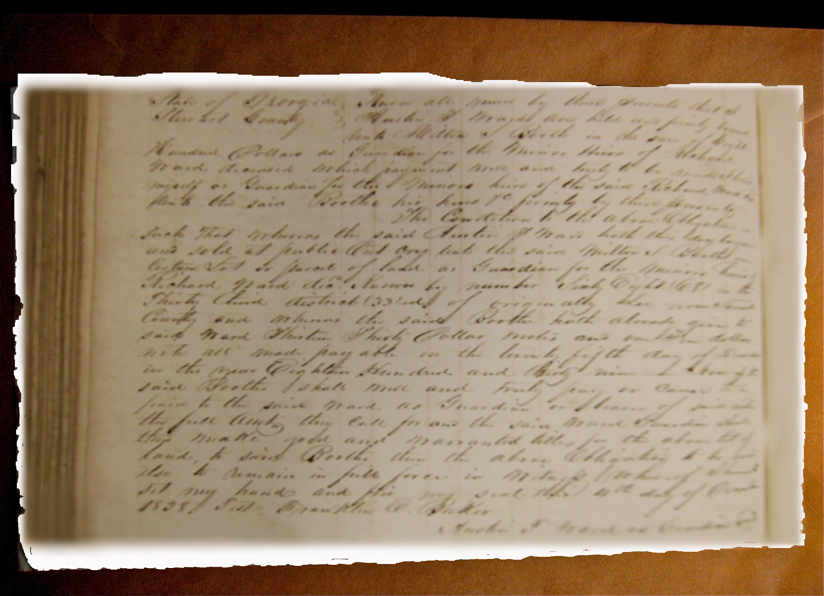 State of Georgia } Know all men by these presents that I
Stewart County } Austin T Ward am held and firmly bound
unto Milton S Booth in the sum of Eight
Hundred Dollars as Guardian for the Minor Heirs of Richard
Ward deceased which payment well and truly to be
myself as Guardian for the Minor heirs of the said Richard Ward
unto the said Boothe his heirs &c firmly by these presents
The Condition to the above Obligation is
such that whereas the said Austin T Ward hath this day
and sold at public Out cry unto the said Milton S Booth
Certain Lot or parcel of land as Guardian for the Minor heirs of
Richard Ward decd Known by number Sixty Eight (68) in the
Thirty third district (33rd) of originally Lee now Stewart
County and whereas the said Boothe hath already given to
said Ward Thirteen Thirty Dollar notes and one ten dollar
note all made payable on the twenty fifth day of
in the year Eighteen Hundred and thirty nine now if the
said Boothe shall well and truly pay or cause to be
paid to the said Ward as Guardian or bearer of said notes
the full Amts they call for and the said Ward Guardian
then make good and warranted titles for the above lot of
land, to said Boothe then the above Obligation to be
else to remain in full force in Witness whereof I
Set my hand and fix my seal this day of
1838 Test Franklin C. Baker
Austin T Ward as Guardian